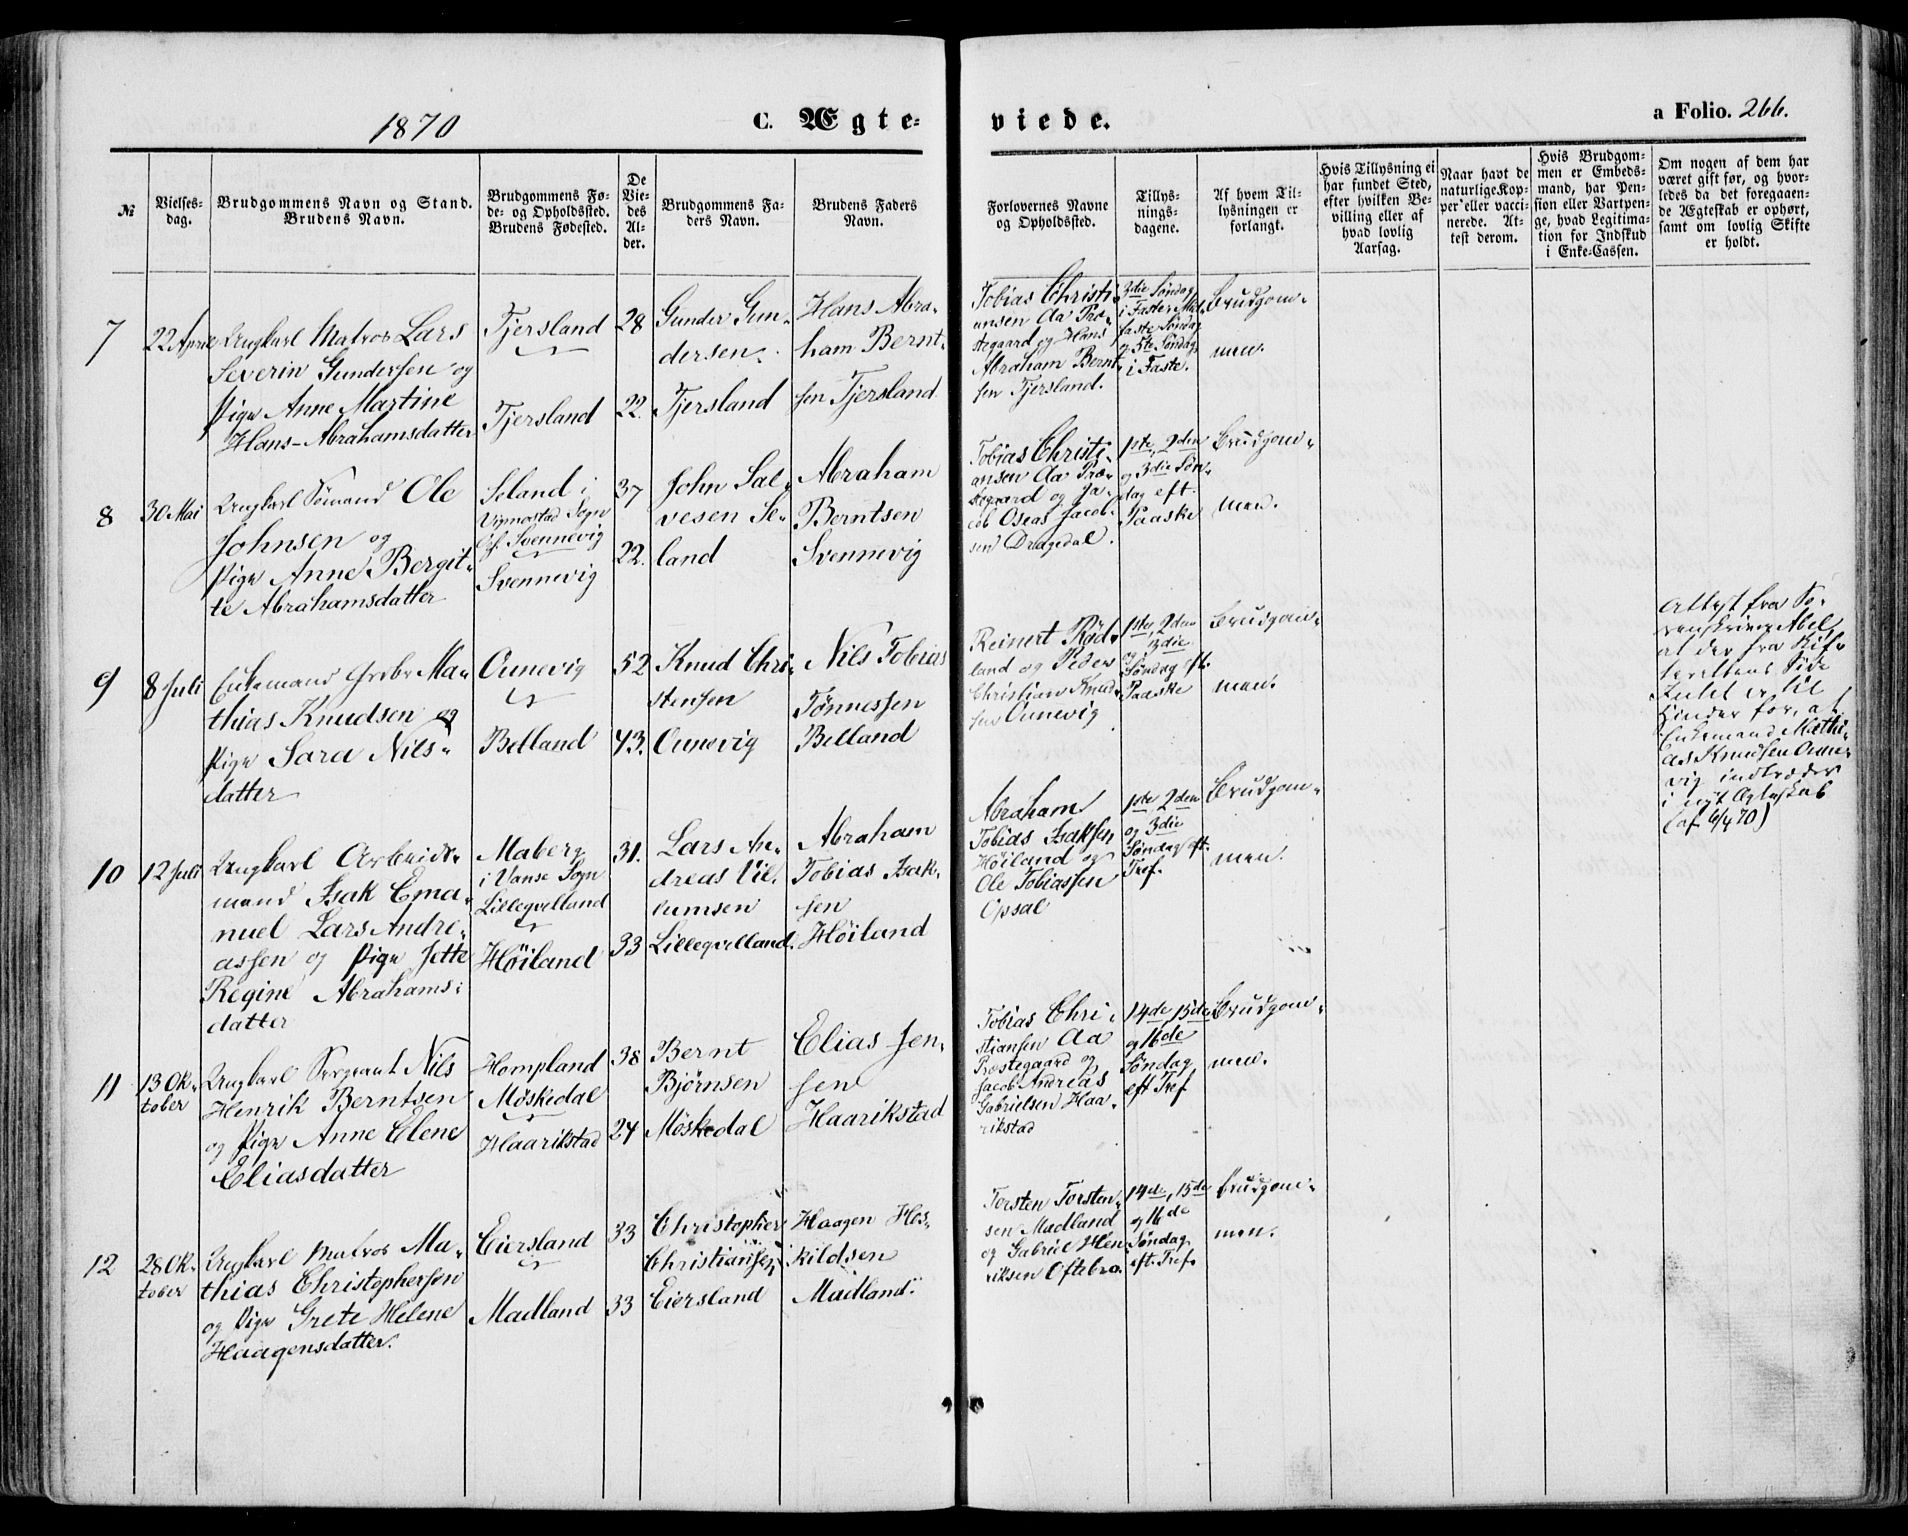 1870
C. Ægteviede.
a Folio. 266.
№
Vielsesdag.
Brudgommens Navn og Stand.
Brudens Navn.
Brudgommens Føde- og Opholdssted.
Brudens Fødested.
De Viedes Alder.
Brudgommens Faders Navn.
Brudens Faders Navn.
Forlovernes Navne
og Opholdssted.
Tillysningsdagene.
Af hvem Tillysningen er forlangt.
Hvis Tillysning ei har fundet Sted, efter hvilken Bevilling eller af hvad lovlig Aarsag.
Naar havt de naturlige Kopper eller vaccinerede. Attest derom.
Hvis Brudgommen er Embedsmand, har Pension eller Vartpenge, hvad Legitimation for Indskud i Enke-Cassen.
Om nogen af dem har været gift før, og hvorledes da det foregaaende Ægteskab er ophørt, samt om lovlig Skifte er holdt.
7
22 April
Ungkarl Matros Lars
Severin Gundersen og
Pige Anne Martine
Hans-Abrahamsdatter
Tjersland
Tjersland
28
22.
Gunder Gun-
dersen.
Tjersland
Hans Abra-
ham Bernt-
sen Tjersland
Tobias Christi-
ansen Aa Præ-
stegaard og Hans
Abraham Bernt-
sen Tjersland.
3die Søndag
i Faste, Mid-
faste Søndag
og 5te Søndag
i Faste.
Brudgom-
men.
8
30 Mai
Ungkarl Sømand Ole
Johnsen og
Pige Anne Bergit-
te Abrahamsdatter
Seland i
Vigmostad Sogn
Svennevig
Svennevig
37
22.
John Sal-
vesen Se-
land
Abraham
Berntsen
Svennevig
Tobias Christi-
ansen Aa Præ-
stegaard og Ja-
cob Oseas Jacob-
sen Dragedal.
1ste, 2den
og 3die Søn-
dag eft.
Paaske
Brudgom-
men.
9
8 Juli
Enkemand Grdbr Ma-
thias Knudsen og
Pige Sara Nils-
datter
Ounevig
Belland
52
43.
Knud Chri-
stensen
Ounevig
Nils Tobias
Tønnessen
Belland
Reinert Röd-
land og Peder
Christian Knud-
sen Ounevig
1ste, 2den
og 3die
Søndag eft.
Paaske
Brudgom-
men.
Attest fra So-
renskriver Abel
at der fra Skif-
terettens Side
Intet er til
Hinder for, at
Enkemand Mathi-
as Knudsen Oune-
vig indtræder
i nyt Ægteskab
(af 6/4 70)
10
12 Juli
Ungkarl Arbeids-
mand Isak Ema-
nuel Lars Andre-
assen og Pige Jette
Regine Abrahams-
datter
Maberg
i Vanse Sogn
Lilleqvelland
Høiland
31.
33
Lars An-
dreas Vil-
lumsen
Lilleqvelland.
Abraham
Tobias Isak-
sen
Høiland
Abraham
Tobias Isaksen
Høiland og
Ole Tobiassen
Opsal
1ste, 2den
og 3die
Søndag eft.
Tref.
Brudgom-
men.
11
13 Ok-
tober
Ungkarl Sergeant Nils
Henrik Berntsen
og Pige Anne Elene
Eliasdatter
Hompland
Møskedal
Haarikstad
38
24
Bernt
Bjørnsen
Møskedal
Elias Jen-
sen
Haarikstad
Tobias Chri-
stiansen Aa
Præstegaard og
Jacob Andreas
Gabrielsen Haa-
rikstad
14de, 15de
og 16de
Søndag
eft Tref
Brudgom-
men.
12
28 Ok-
tober
Ungkarl Matros Ma-
thias Christophersen
og Pige Grete Helene
Haagensdatter.
Eiersland
Madland
33
33
Christopher
Christiansen
Eiersland
Haagen Hes-
kildsen
Madland.
Torsten Torsten-
sen Madland
og Gabriel Hen-
riksen Oftebro.
14de, 15de
og 16de
Søndag
eft. Tref.
Brudgom-
men.